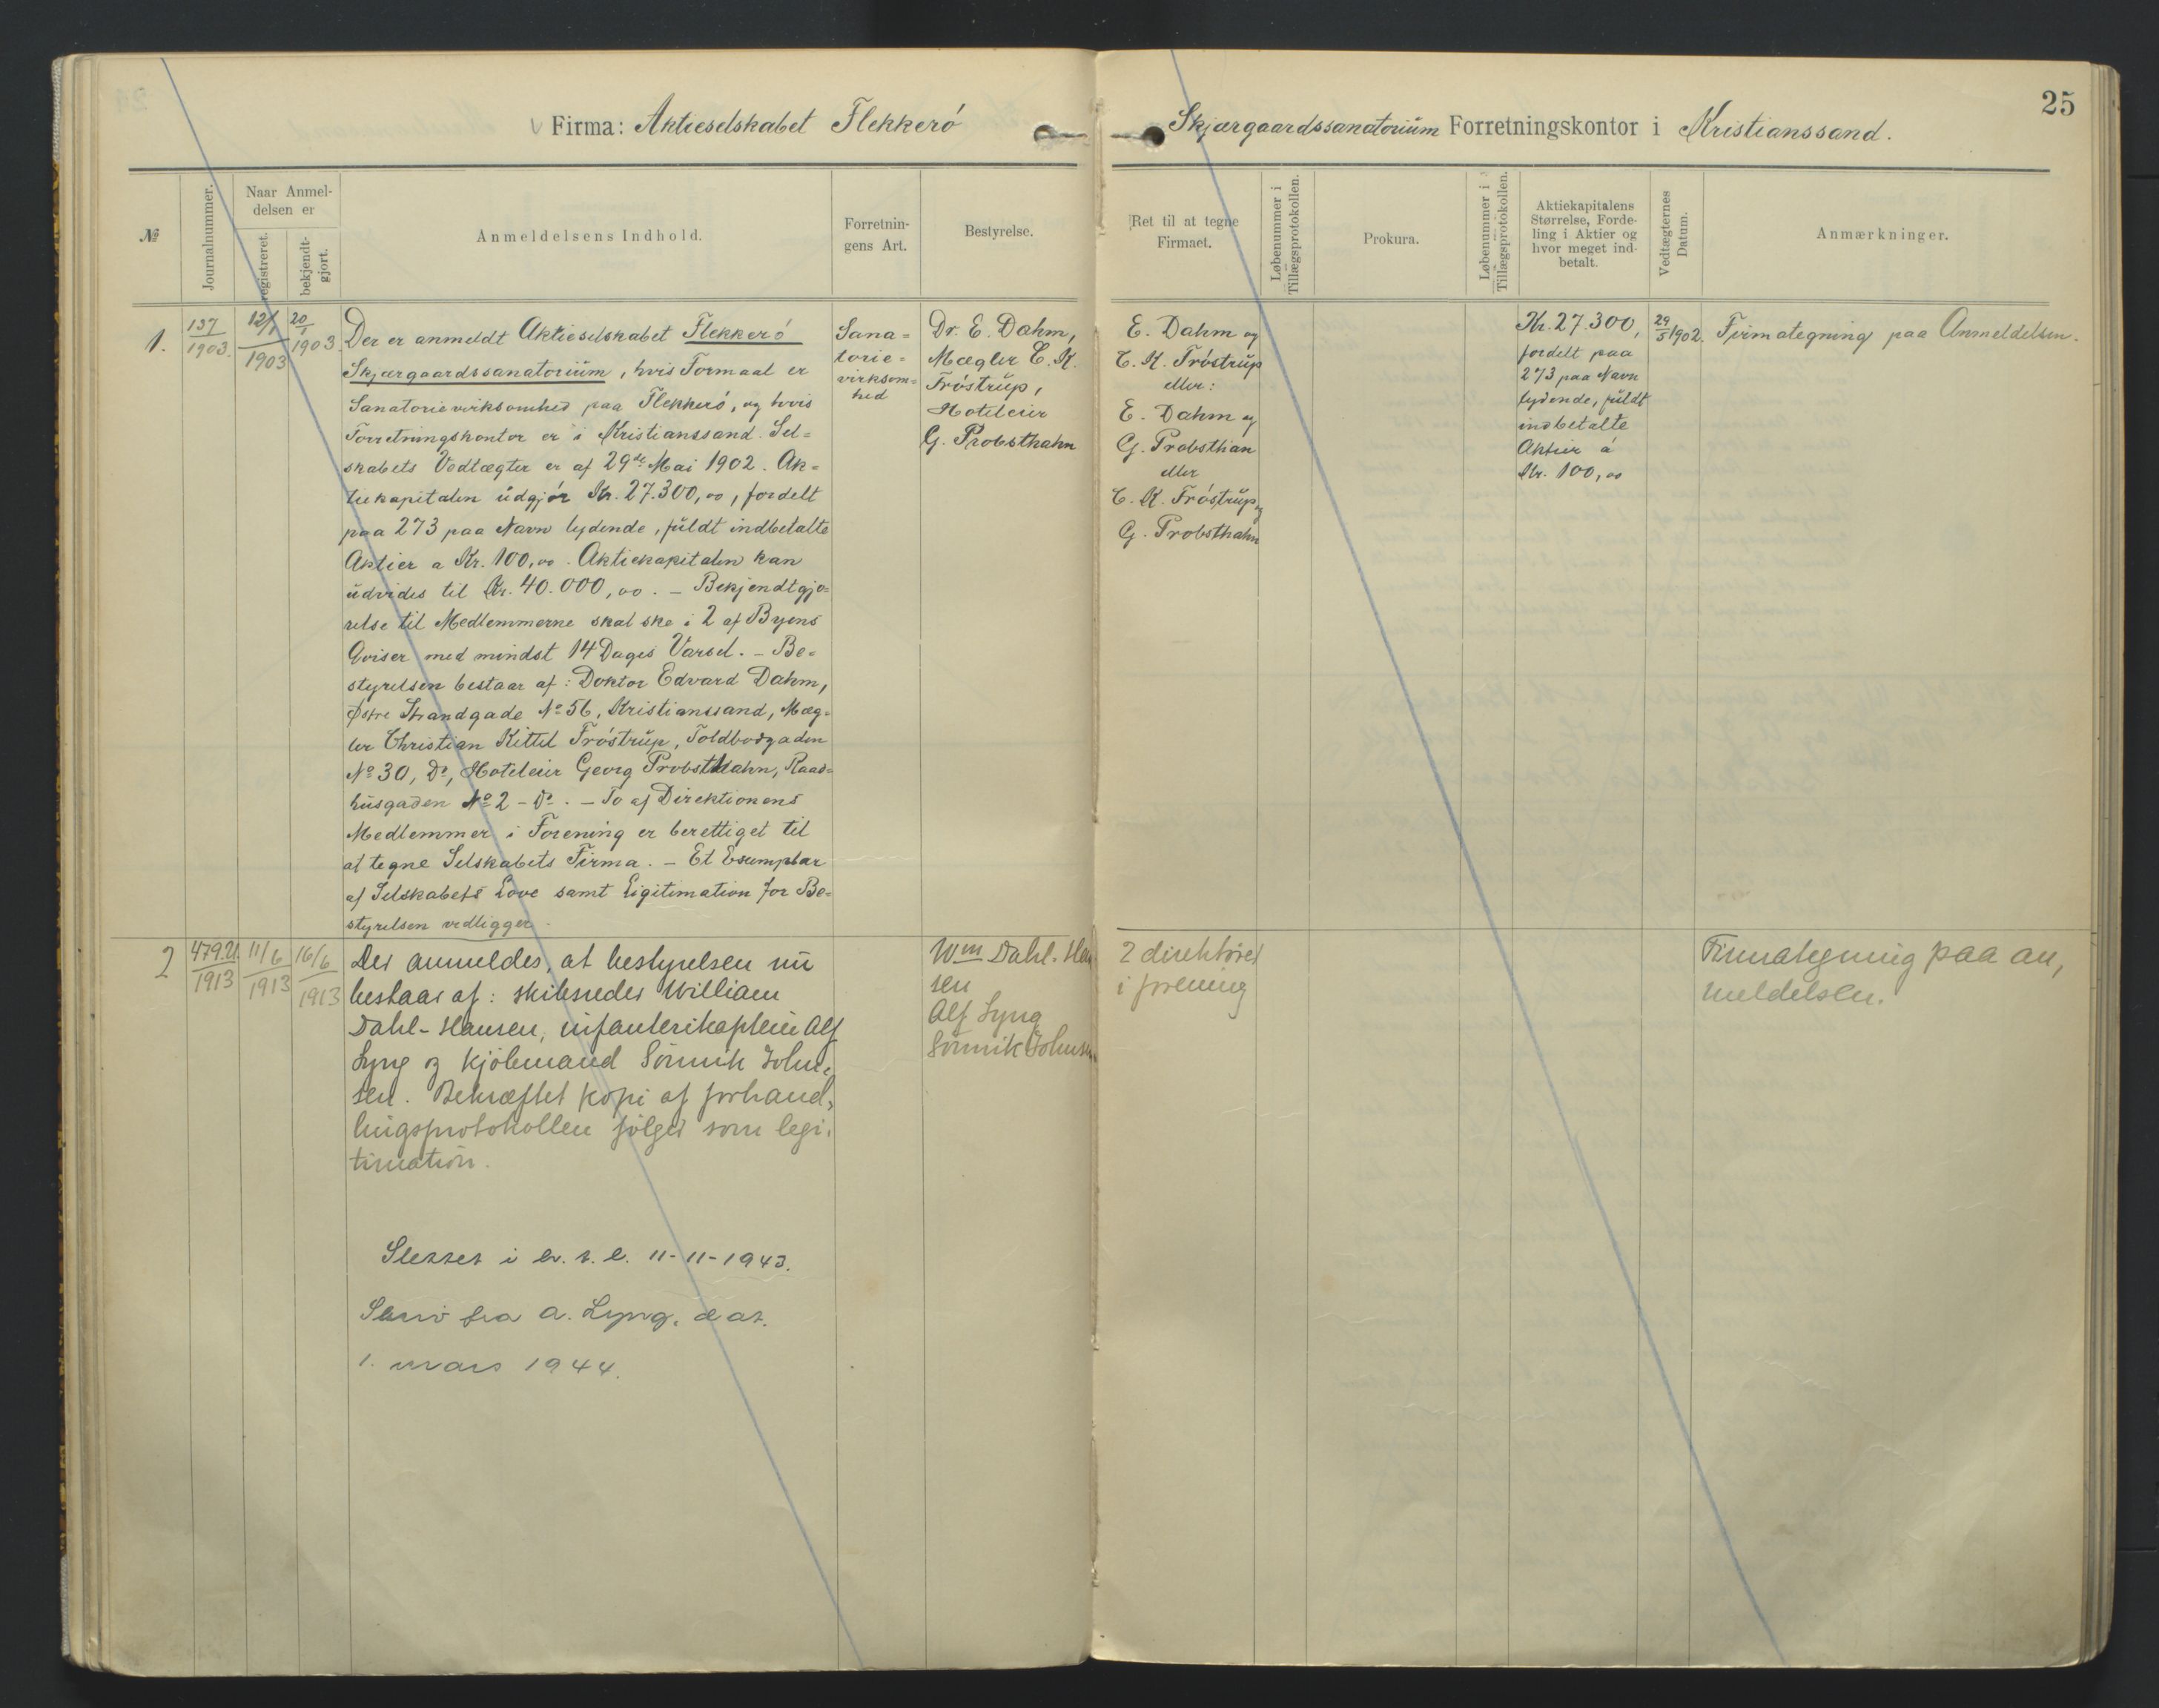 25
Firma: Aktieselskabet Flekkerö Skjærgaardssanatorium Forretningskontor i Kristianssand.
№
Journalnummer.
Naar Anmel-
delsen er
registreret.
bekjendt-
gjort.
Anmeldelsens Indhold.
Forretnin-
gens Art.
Bestyrelse.
Ret til at tegne
Firmaet.
Løbenummer i
Tillægsprotokollen.
Prokura.
Løbenummer i
Tillægsprotokollen.
Aktiekapitalens
Størrelse, Forde-
ling i Aktier og
hvor meget ind-
betalt.
Vedtægternes
Datum.
Anmærkninger.
1.
137
1903.
12/1
1903
20/1
1903.
Der er anmeldt Aktieselskabet Flekkerö
Skjærgaardssanatorium, hvis Formaal er
Sanatorievirksomhed paa Flekkerö, og hvis
Forretningskontor er i Kristianssand. Sel=
skabets Vedtægter er af 29de Mai 1902. Ak=
tiekapitalen udgjør Kr. 27.300,00, fordelt
paa 273 paa Navn lydende, fuldt indbetalte
Aktier a Kr. 100,00. Aktiekapitalen kan
udvides til Kr. 40.000,00. – Bekjendtgjø=
relse til Medlemmerne skal ske i 2 af Byens
Aviser med mindst 14 Dages Varsel. – Be=
styrelsen bestaar af: Doktor Edvard Dahm,
Østre Strandgade No 56, Kristianssand, Mæg=
ler Christian Kittel Fröstrup, Toldbodgaden
No 30, Do, Hoteleier Georg Probsthahn, Raad=
husgaden No 2 - Do. – To af Direktionens
Medlemmer i Forening er berettiget til
at tegne Selskabets Firma. – Et Exemplar
af Selskabets Love samt Ligitimation for Be=
styrelsen vedligger.
Sana=
torie=
virksom=
hed
Dr. E. Dahm,
Mægler C. K.
Fröstrup,
Hoteleier
G. Probsthahn
E. Dahm og
C. K. Fröstrup
eller:
E. Dahm og
G. Probsthan
eller
C. K. Fröstrup og
G. Probsthahn
Kr. 27.300,
fordelt paa
273 paa Navn
lydende, fuldt
indbetalte
Aktier á
Kr. 100,00
29/5 1902.
Firmategning paa Anmeldelsen.
2
1913
11/6
1913
16/6
1913
Der anmeldes, at bestyrelsen nu
bestaar af: skibsreder William
Dahl-Hansen, infanterikaptein Alf
Lyng og kjøbmand Sönnik John,
sen. Bekræftet kopi af forhand,
lingsprotokollen følger som legi,
timation.
Wm Dahl-Han
sen
Alf Lyng
Sönnik Johnsen
2 direktører
i forening
Firmategning paa an,
meldelsen.
Slettet i h. t. l. 11-11-1943.
Skriv fra A. Lyng, dat.
1. mars 1944.